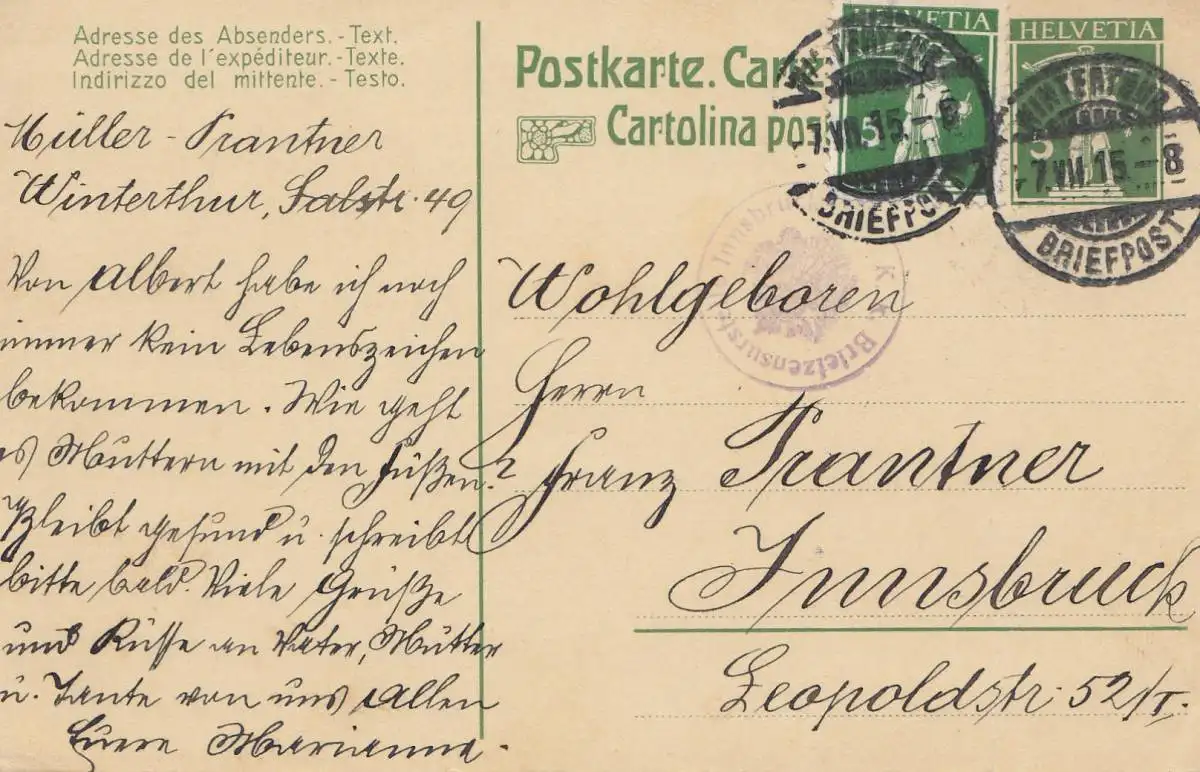 Adresse des Absenders.-Text.
Adresse de l'expéditeur.-Texte.
Indirizzo del mittente.-Testo.
Müller-Prantner
Winterthur, Salstr. 49
Von Albert habe ich noch
immer kein Lebenszeichen
bekommen. Wie geht
es Muttern mit den Füßen?
Bleibt gesund u. schreibt
bitte bald. Viele Grüße
und Küsse an Vater, Mutter
u. Tante von uns Allen
Euere Marianne.
Postkarte. Car
Cartolina pos
HELVETIA
5
HELVETIA
5
WINTERTHUR
7.VII.15.-6
BRIEFPOST
WINTERTHUR
-7.VII.15.-8
BRIEFPOST
K.K. Briefzensurst Innsbru
Wohlgeboren
Herrn
Franz Prantner
Innsbruck
Leopoldstr. 52/I.